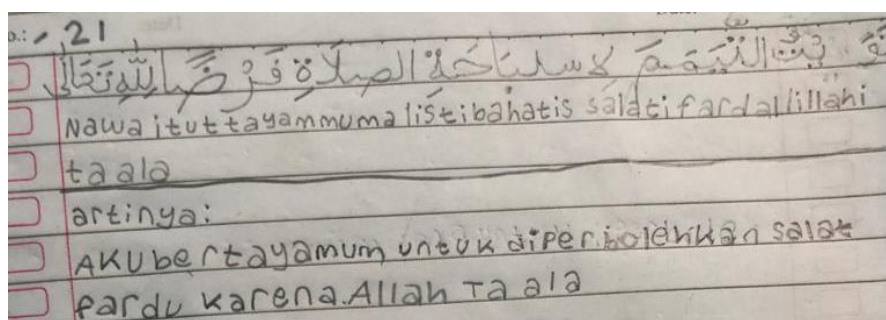 o.: - 21
نَوَ يْتُ التَّيَمُّمَ لاستباحة الصلاة فَرْضًا لله تعالى
Nawaituttayammuma listibahatis salati fardallillahi
taala
artinya:
AKU bertayamum untuk diperbolehkan salat
fardu karena.Allah Ta ala